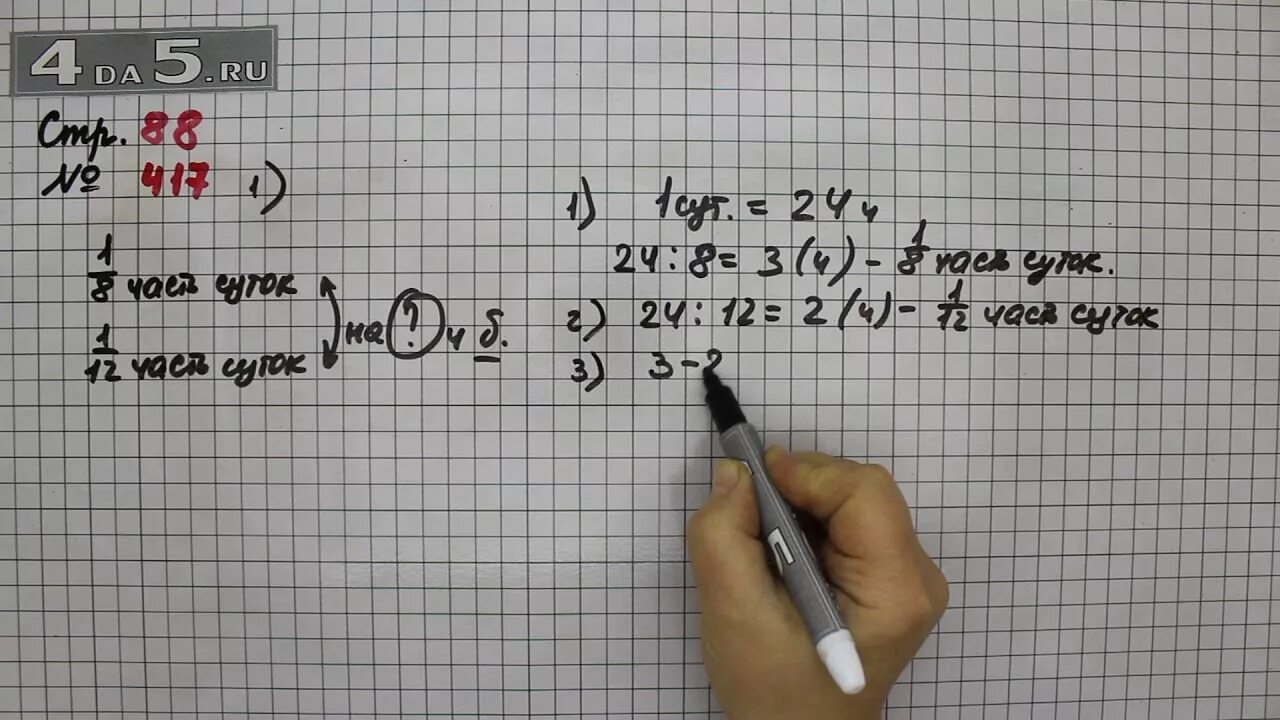 4DA5.RU
Стр. 88
№ 417 1)
1/8 часть суток
1/12 часть суток
на ? ч б.
1) 1 сут. = 24 ч
24 : 8 = 3 (ч) - 1/8 часть суток.
2) 24 : 12 = 2 (ч) - 1/12 часть суток
3) 3 - 2